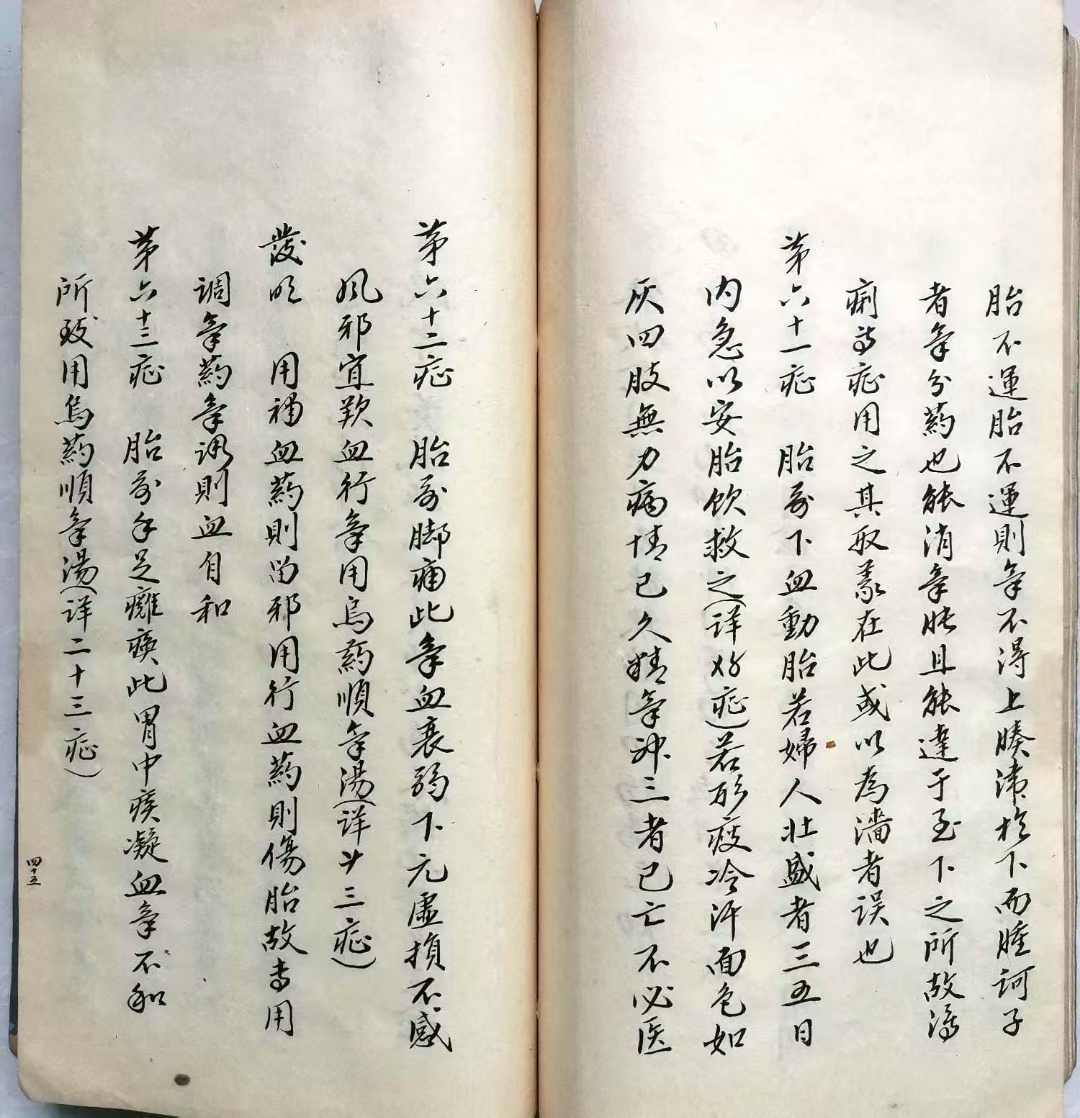 胎不運胎不運則氣不得上腠滯於下而腫訶子
者氣分药也能消氣脹且能達于至下之所故瀉
痢等症用之其取義在此或以為濇者误也
第六十一症　胎前下血動胎若婦人壯盛者三五日
内急以安胎飲救之(详症)若形疲冷汗面色如
灰四肢無力病情已久精氣神三者已亡不必医
第六十二症　胎前脚痛此氣血衰弱下元虛損不感
風邪宜歎血行氣用烏药順氣湯(详廿三症)
發明　用補血药則留邪用行血药則傷胎故专用
調氣药氣调則血自和
第六十三症　胎前手足癱瘓此胃中痰凝血氣不和
所致用烏药順氣湯(详二十三症)
四十五